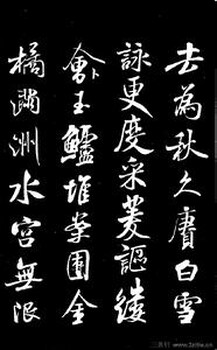 去為秋久賡白雪
詠更度采菱謳縷
會卜玉鱸堆案團金
橘滿洲水宮無限